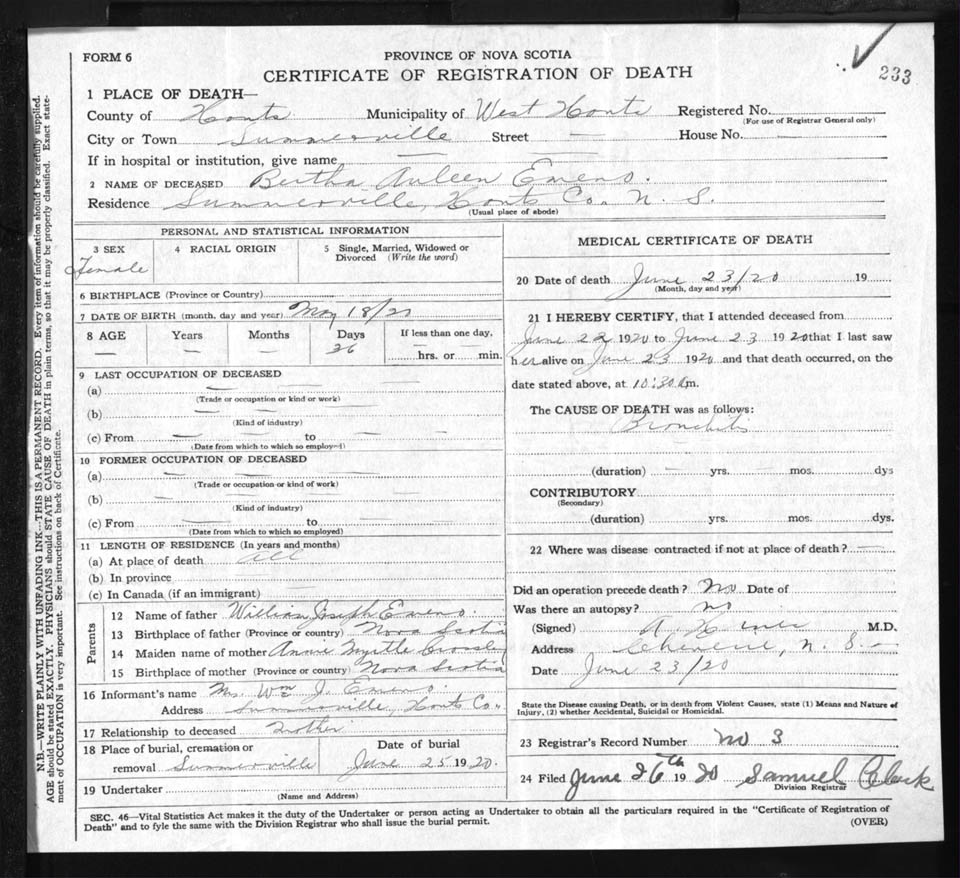 FORM 6
PROVINCE OF NOVA SCOTIA
CERTIFICATE OF REGISTRATION OF DEATH
233
1 PLACE OF DEATH—
County of Hants Municipality of West Hants Registered No.
(For use of Registrar General only)
City or Town Summerville Street — House No. —
If in hospital or institution, give name —
2 NAME OF DECEASED Bertha Auleen Emens.
Residence Summerville, Hants Co. N. S.
(Usual place of abode)
PERSONAL AND STATISTICAL INFORMATION
3 SEX 4 RACIAL ORIGIN 5 Single, Married, Widowed or
Divorced (Write the word)
Female
6 BIRTHPLACE (Province or Country)
7 DATE OF BIRTH (month, day and year) May 18/20
8 AGE Years Months Days If less than one day,
— — — 36 hrs. or min.
9 LAST OCCUPATION OF DECEASED
(a) —
(Trade or occupation or kind or work)
(b) — —
(Kind of industry)
(c) From — to —
(Date from which to which so employed)
10 FORMER OCCUPATION OF DECEASED
(a) — —
(Trade or occupation or kind of work)
(b) — —
(Kind of industry)
(c) From — to —
(Date from which to which so employed)
11 LENGTH OF RESIDENCE (In years and months)
(a) At place of death all
(b) In province
(c) In Canada (if an immigrant)
Parents
12 Name of father William Joseph Emens.
13 Birthplace of father (Province or country) Nova Scotia
14 Maiden name of mother Annie Myrtle Crossley
15 Birthplace of mother (Province or country) Nova Scotia
16 Informant's name Mrs. Wm J. Emens.
Address Summerville, Hants Co.
17 Relationship to deceased Mother
18 Place of burial, cremation or Date of burial
removal Summerville June 25 1920.
19 Undertaker
(Name and Address)
MEDICAL CERTIFICATE OF DEATH
20 Date of death June 23/20 19
(Month, day and year)
21 I HEREBY CERTIFY, that I attended deceased from
June 22 1920 to June 23 1920 that I last saw
her alive on June 23 1920 and that death occurred, on the
date stated above, at 10:30 a.m.
The CAUSE OF DEATH was as follows:
Bronchitis
(duration) — yrs. — mos. dys
CONTRIBUTORY
(Secondary)
(duration) yrs. mos. dys.
22 Where was disease contracted if not at place of death? —
Did an operation precede death? No Date of
Was there an autopsy? no
(Signed) A. M.D.
Address Cheverie, N. S.
Date June 23/20
State the Disease causing Death, or in death from Violent Causes, state (1) Means and Nature of
Injury, (2) whether Accidental, Suicidal or Homicidal.
23 Registrar's Record Number no 3
24 Filed June 26th 1920 Samuel Clark
Division Registrar
SEC. 46—Vital Statistics Act makes it the duty of the Undertaker or person acting as Undertaker to obtain all the particulars required in the "Certificate of Registration of
Death" and to fyle the same with the Division Registrar who shall issue the burial permit. (OVER)
N.B.—WRITE PLAINLY WITH UNFADING INK—THIS IS A PERMANENT RECORD. Every item of information should be carefully supplied.
AGE should be stated EXACTLY. PHYSICIANS should STATE CAUSE OF DEATH in plain terms, so that it may be properly classified. Exact state-
ment of OCCUPATION is very important. See instructions on back of Certificate.